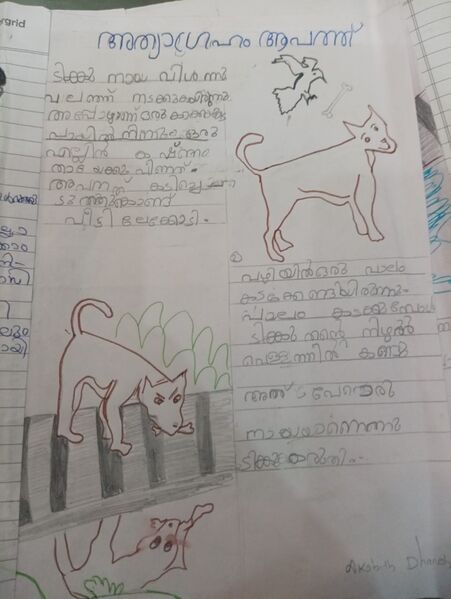 അത്യാഗ്രഹം ആപത്ത്
ടിക്കു നായ വിശന്നു
വലഞ്ഞ് നടക്കുകയായിരുന്നു
അപ്പോഴാണ് ഒരു കാക്കയുടെ
വായിൽ നിന്നും ഒരു
എല്ലിൻ കഷ്ണം
താഴേക്കു വീണത്.
അവനത് കടിച്ചെ
ടുത്തുകൊണ്ട്
വീട്ടിലേക്കോടി.
വഴിയിൽ ഒരു പാലം
കടക്കേണ്ടിയിരുന്നു.
പാലം കടക്കുമ്പോൾ
ടിക്കു തന്റെ നിഴൽ
വെള്ളത്തിൽ കണ്ടു
അത് വേറൊരു
നായയാണെന്നു
ടിക്കു കരുതി.
Akabith Dhanesh